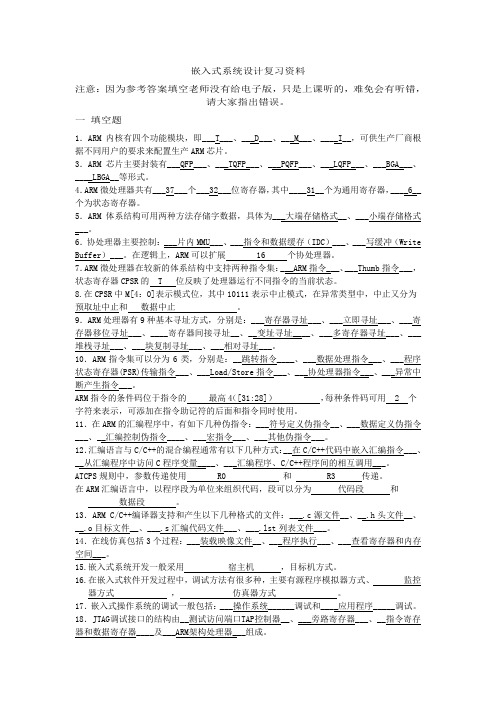 嵌入式系统设计复习资料
注意：因为参考答案填空老师没有给电子版，只是上课听的，难免会有听错，
请大家指出错误。
一 填空题
1．ARM 内核有四个功能模块，即___T___、___D___、___M___、____I__，可供生产厂商根
据不同用户的要求来配置生产ARM芯片。
3．ARM 芯片主要封装有___QFP___、___TQFP___、___PQFP___、___LQFP___、___BGA___、
____LBGA__等形式。
4.ARM微处理器共有___37___个___32___位寄存器，其中____31__个为通用寄存器，____6__
个为状态寄存器。
5．ARM 体系结构可用两种方法存储字数据，具体为___大端存储格式__、___小端存储格式
___。
6．协处理器主要控制：___片内MMU___、___指令和数据缓存（IDC）___、___写缓冲（Write
Buffer）___。在逻辑上，ARM可以扩展 16 个协处理器。
7.ARM微处理器在较新的体系结构中支持两种指令集：___ARM指令___、___Thumb指令___，
状态寄存器CPSR的 T 位反映了处理器运行不同指令的当前状态。
8.在CPSR中M[4：0]表示模式位，其中10111表示中止模式，在异常类型中，中止又分为
预取址中止和 数据中止 。
9．ARM处理器有9种基本寻址方式，分别是：___寄存器寻址___、___立即寻址___、___寄
存器移位寻址___、____寄存器间接寻址__、__变址寻址____、___多寄存器寻址___、___
堆栈寻址___、___块复制寻址___、___相对寻址___。
10．ARM指令集可以分为6类，分别是：__跳转指令____、___数据处理指令___、___程序
状态寄存器(PSR)传输指令___、___Load/Store指令___、___协处理器指令___、___异常中
断产生指令___。
ARM指令的条件码位于指令的 最高4([31:28]) ，每种条件码可用 2 个
字符来表示，可添加在指令助记符的后面和指令同时使用。
11．在ARM的汇编程序中，有如下几种伪指令：___符号定义伪指令__、___数据定义伪指令
___、__汇编控制伪指令____、___宏指令___、___其他伪指令___。
12.汇编语言与C/C++的混合编程通常有以下几种方式：__在C/C++代码中嵌入汇编指令___、
__从汇编程序中访问C程序变量____、___汇编程序、C/C++程序间的相互调用___。
ATCPS规则中，参数传递使用 R0 和 R3 传递。
在ARM汇编语言中，以程序段为单位来组织代码，段可以分为 代码段 和
数据段 。
13．ARM C/C++编译器支持和产生以下几种格式的文件：___.c源文件__、__.h头文件__、
__.o目标文件__、___.s汇编代码文件___、___.lst列表文件___。
14．在线仿真包括3个过程：___装载映像文件__、___程序执行___、___查看寄存器和内存
空间___。
15.嵌入式系统开发一般采用 宿主机 ，目标机方式。
16.在嵌入式软件开发过程中，调试方法有很多种，主要有源程序模拟器方式、 监控
器方式 ， 仿真器方式 。
17．嵌入式操作系统的调试一般包括：___操作系统______调试和____应用程序_____调试。
18．JTAG调试接口的结构由__测试访问端口TAP控制器__、___旁路寄存器___、__指令寄存
器和数据寄存器____及___ARM架构处理器___组成。